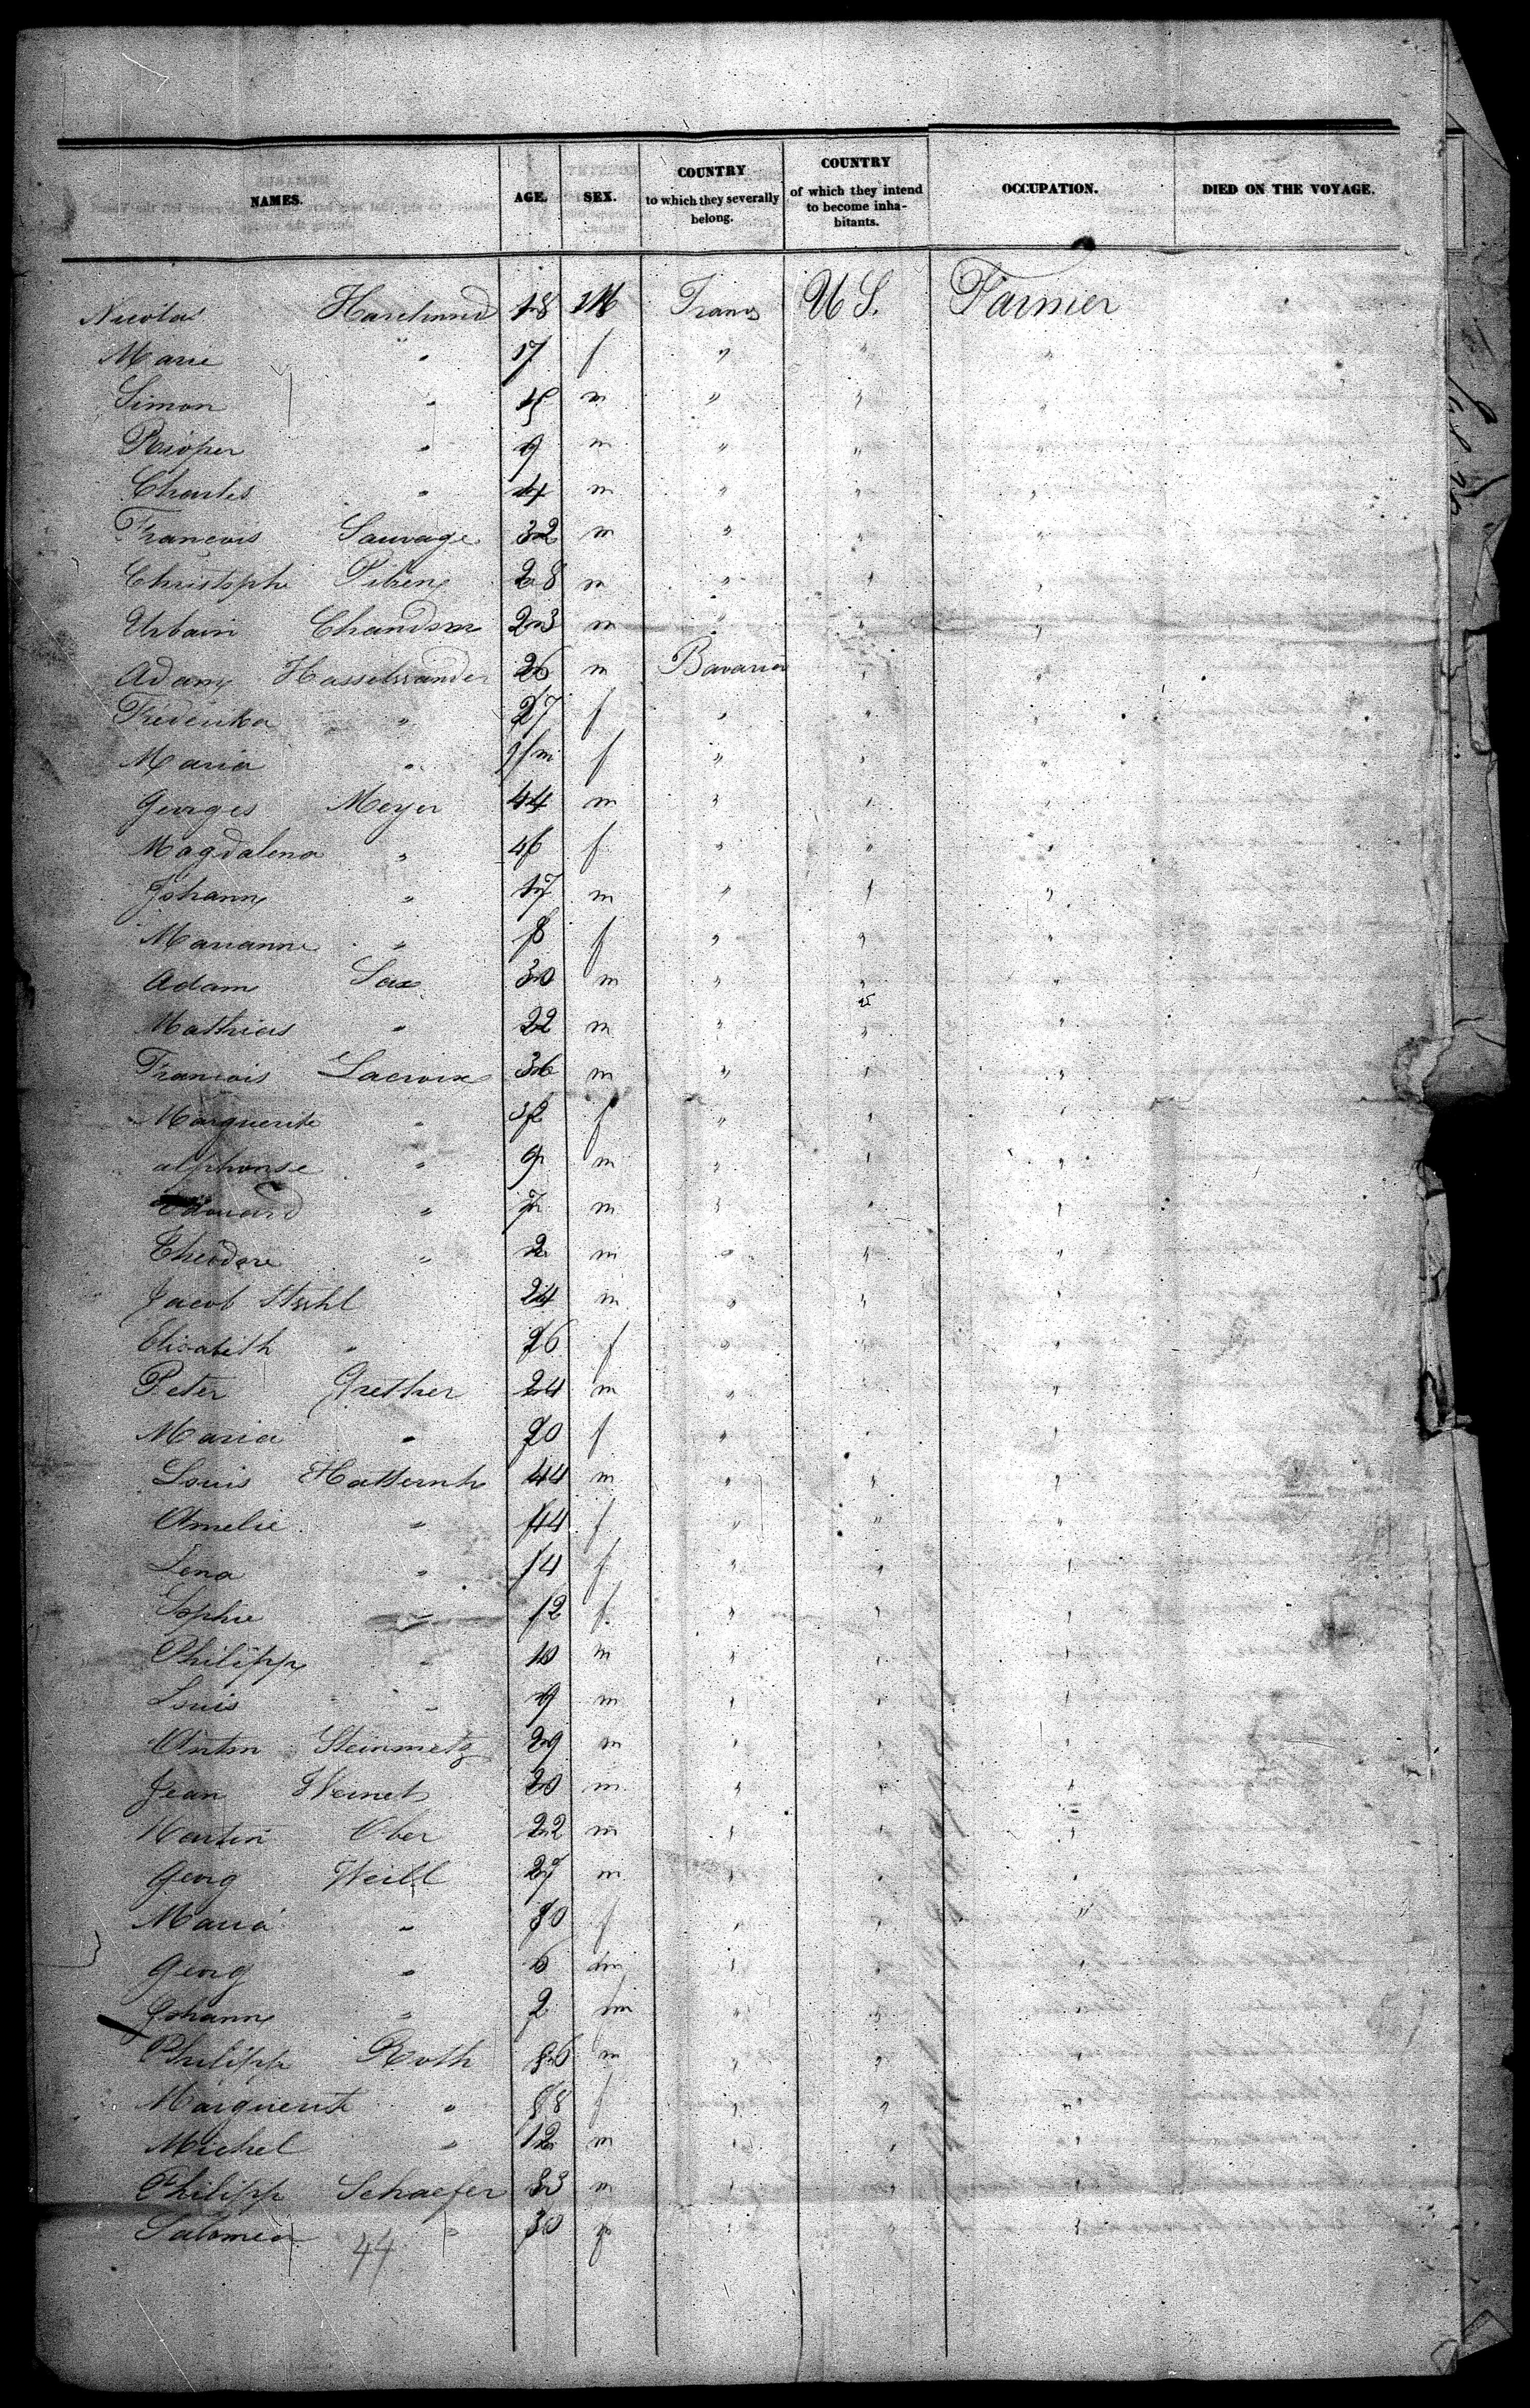 NAMES. AGE. SEX. COUNTRY to which they severally belong. COUNTRY of which they intend to become inha-bitants. OCCUPATION. DIED ON THE VOYAGE.
Nicolas 18 M France U S. Farmer
Marie " 17 f " " "
Simon " 15 m " " "
Prosper " 9 m " " "
Charles " 4 m " " "
Francois Sauvage 32 m " " "
Christophe 28 m " " "
Urbain 23 m " " "
Adam Hasselwander 26 m Bavaria " "
Frederika " 27 f " " "
Maria " f " " "
Georges Meyer 44 m " " "
Magdalena " 46 f " " "
Johann " 17 m " " "
Marianne " 8 f " " "
Adam Sax 30 m " " "
Mathias " 22 m " " "
Francois Lacroix 36 m " " "
Marguerite " 32 f " " "
alphonse " 9 m " " "
Edouard " 7 m " " "
Theodore " 2 m " " "
Jacob 24 m " " "
Elisabeth " 26 f " " "
Peter Grether 24 m " " "
Maria " 20 f " " "
Louis 44 m " " "
Amelie " 44 f " " "
Lena " 14 f " " "
Sophie " 12 f " " "
Philipp " 10 m " " "
Louis " 9 m " " "
Anton Steinmetz 29 m " " "
Jean 20 m " " "
Martin Ober 22 m " " "
Georg Weill 27 m " " "
Maria " 30 f " " "
Georg " 6 m " " "
Johann " 2 m " " "
Philipp Roth 36 m " " "
Marguerite " 38 f " " "
Michel " 12 m " " "
Philipp Schaefer 33 m " " "
Salomea " 30 f " " "
44